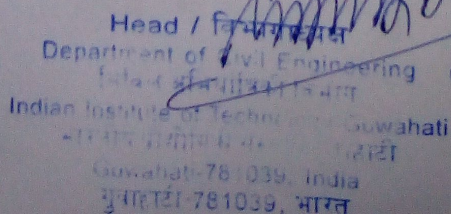 Head / विभागाध्यक्ष
Department of Civil Engineering
सिविल अभियांत्रिकी विभाग
Indian Institute of Technology Guwahati
गुवाहाटी
Guwahati-781039, India
गुवाहाटी-781039, भारत